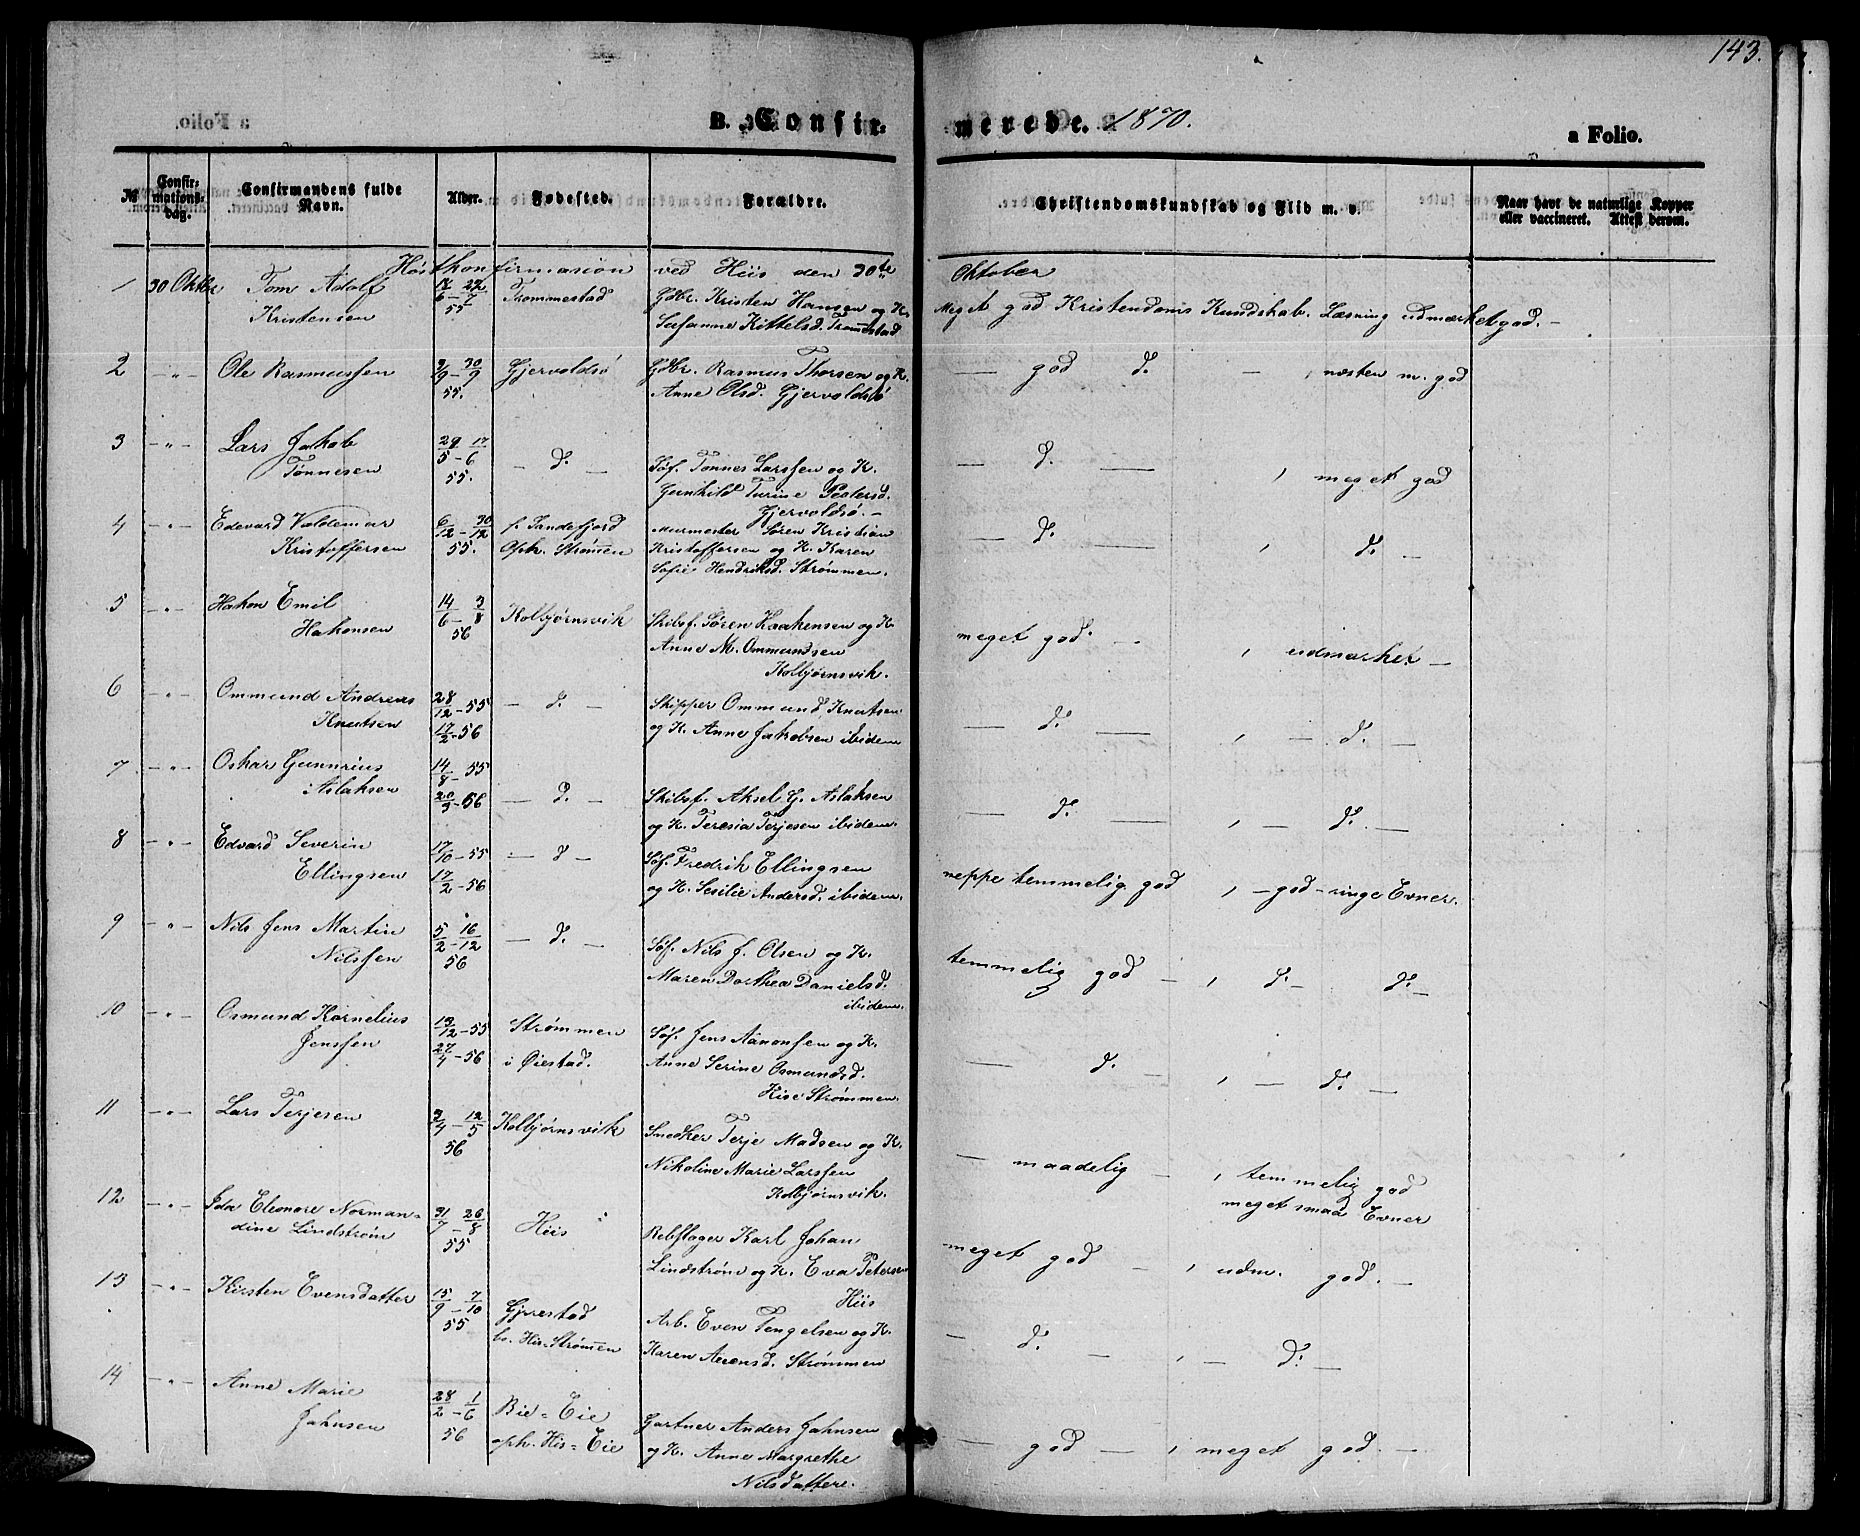 143.
B. Confir- merede. 1870.
a Folio.
№ Confir-mations-dag. Confirmandens fulde Navn. Alder. Fødested. Forældre. Christendomskundskab og Flid m. v. Naar havt de naturlige Kopper eller vaccineret. Attest derom.
Høsthonfirmasion ved Hiis den 30te Oktober
1 30 Oktbr Tom Adolf 17/6 - 22/7 Trommestad Gdbr. Kristen Hansen og K. Meget god Kristendoms Kundskab. Læsning udmærket god. -
Kristensen 55 Susanne Kittelsd. Trommestad
2 - " - Ole Rasmussen 3/9 - 30/9 Gjervoldsø Gdbr. Rasmus Thorsen og K. — god d. - , næsten m. god
55. Anne Olsd. Gjervoldsø
3 - " - Lars Jakob 29/5 - 17/6 - d. - Søf. Tønnes Larssen og K. — d. — , meget god
Tønnesen 55. Gunhild Turine Pedersd.
Gjervoldsø. -
4 - " - Edevard Valdemar 6/12 - 30/12 f. Sandefjord Murmester Søren Kristian — d. — , d. -
Kristoffersen 55. Oph. Strømmen Kristoffersen og K. Karen
Sofie Hendriksd. Strømmen.
5 - " - Hakon Emil 14/6 - 3/8 Kolbjørnsvik Skibsf. Søren Haakensen og K. meget god. - , udmærket -
Hakonsen 56 Anne M. Ommundsen
Kolbjørnsvik.
6 - " - Ommund Andreas 28/12 - 55 - d. - Skipper Ommund Knutsen — d. — , - d. -
Knutsen 17/2 - 56 og K. Anne Jakobsen ibidem
7 - " - Oskar Gunnrius 14/8 - 55 - d. - Skibsf. Aksel G. Aslaksen — d. — , - d. -
Aslaksen 20/3 - 56 og K. Teresia Terjesen ibidem.
8 - " - Edvard Severin 17/10 - 55 - d - Søf. Fredrik Ellingsen neppe temmelig god , - god - ringe Evner.
Ellingsen 17/2 - 56 og K. Sesilie Andersd. ibidem.
9 - " - Nils Jens Martin 5/2 - 16/12 - d. - Søf. Nils J. Olsen og K. temmelig god - , d. - d. -
Nilssen 56 Maren Dorthea Danielsd.
ibidem.
10 - " - Osmund Kornelius 13/12 - 55 Strømmen Søf. Jens Aanonsen og K. — d. — , - d. -
Jenssen 27/4 - 56 i Øiestad. Anne Serine Osmundsd.
Hise Strømmen.
11 - " - Lars Terjesen 3/4 - 12/5 Kolbjørnsvik Snedker Terje Madsen og K. - maadelig - , temmelig god
56 Nikoline Marie Larssen meget smaa Evner
Kolbjørnsvik.
12 - " - Ida Eleonore Norman= 31/7 - 26/8 Hiis Rebslager Karl Johan meget god - , udm. god. -
dine Lindstrøm 55 Lindstrøm og K. Eva Petersen
Hiis
13 - " - Kirsten Evensdatter 15/9 - 7/10 Gjerestad Arb. Even Tengelsen og K. - d. - , - d. -
55 bo. His-Strømmen Karen Aasensd. Strømmen
14 - " - Anne Marie 28/2 - 1/6 Bie = Eie Gartner Anders Jahnsen — god — , meget god. -
Jahnsen 56 oph. His = Eie og K. Anne Margrethe
Nilsdattere.